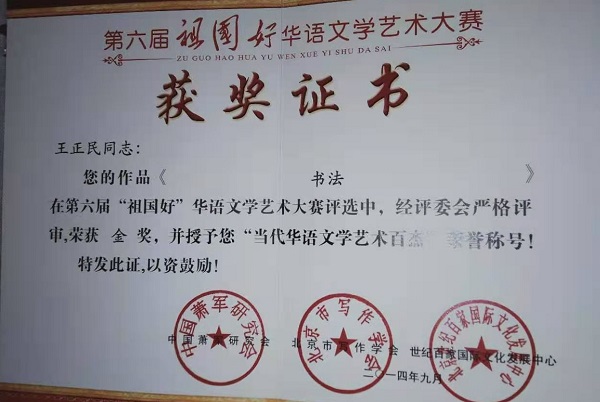 第六届祖国好华语文学艺术大赛
ZU GUO HAO HUA YU WEN XUE YI SHU DA SAI
获奖证书
王正民同志：
您的作品《 书法 》
在第六届“祖国好”华语文学艺术大赛评选中，经评委会严格评
审,荣获 金 奖，并授予您“当代华语文学艺术百杰”荣誉称号！
特发此证,以资鼓励！
中国萧军研究会
北京市写作学会
北京世纪百家国际文化发展中心
中国萧军研究会 北京市写作学会 世纪百家国际文化发展中心
二〇一四年九月